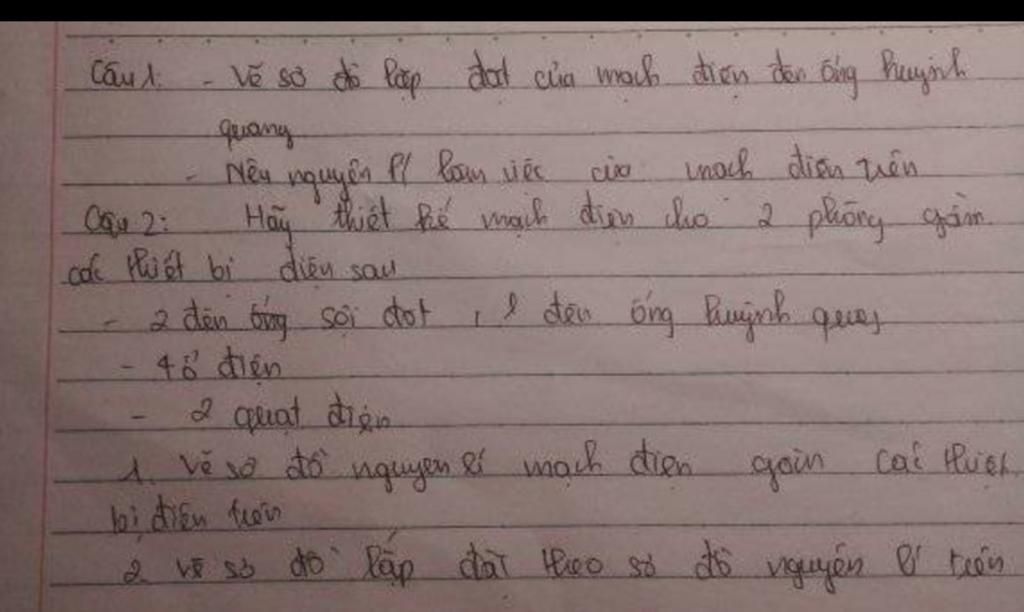 Câu 1. - Vẽ sơ đồ lắp đặt của mạch điện đèn ống huỳnh
quang
- Nêu nguyên lí làm việc của mạch điện trên
Câu 2: Hãy thiết kế mạch điện cho 2 phòng gồm
các thiết bị điện sau
- 2 đèn sợi đốt, đèn ống huỳnh quang
- 4 ổ điện
- 2 quạt điện
1. Vẽ sơ đồ nguyên lí mạch điện gồm các thiết
bị điện trên
2. Vẽ sơ đồ lắp đặt theo sơ đồ nguyên lí trên